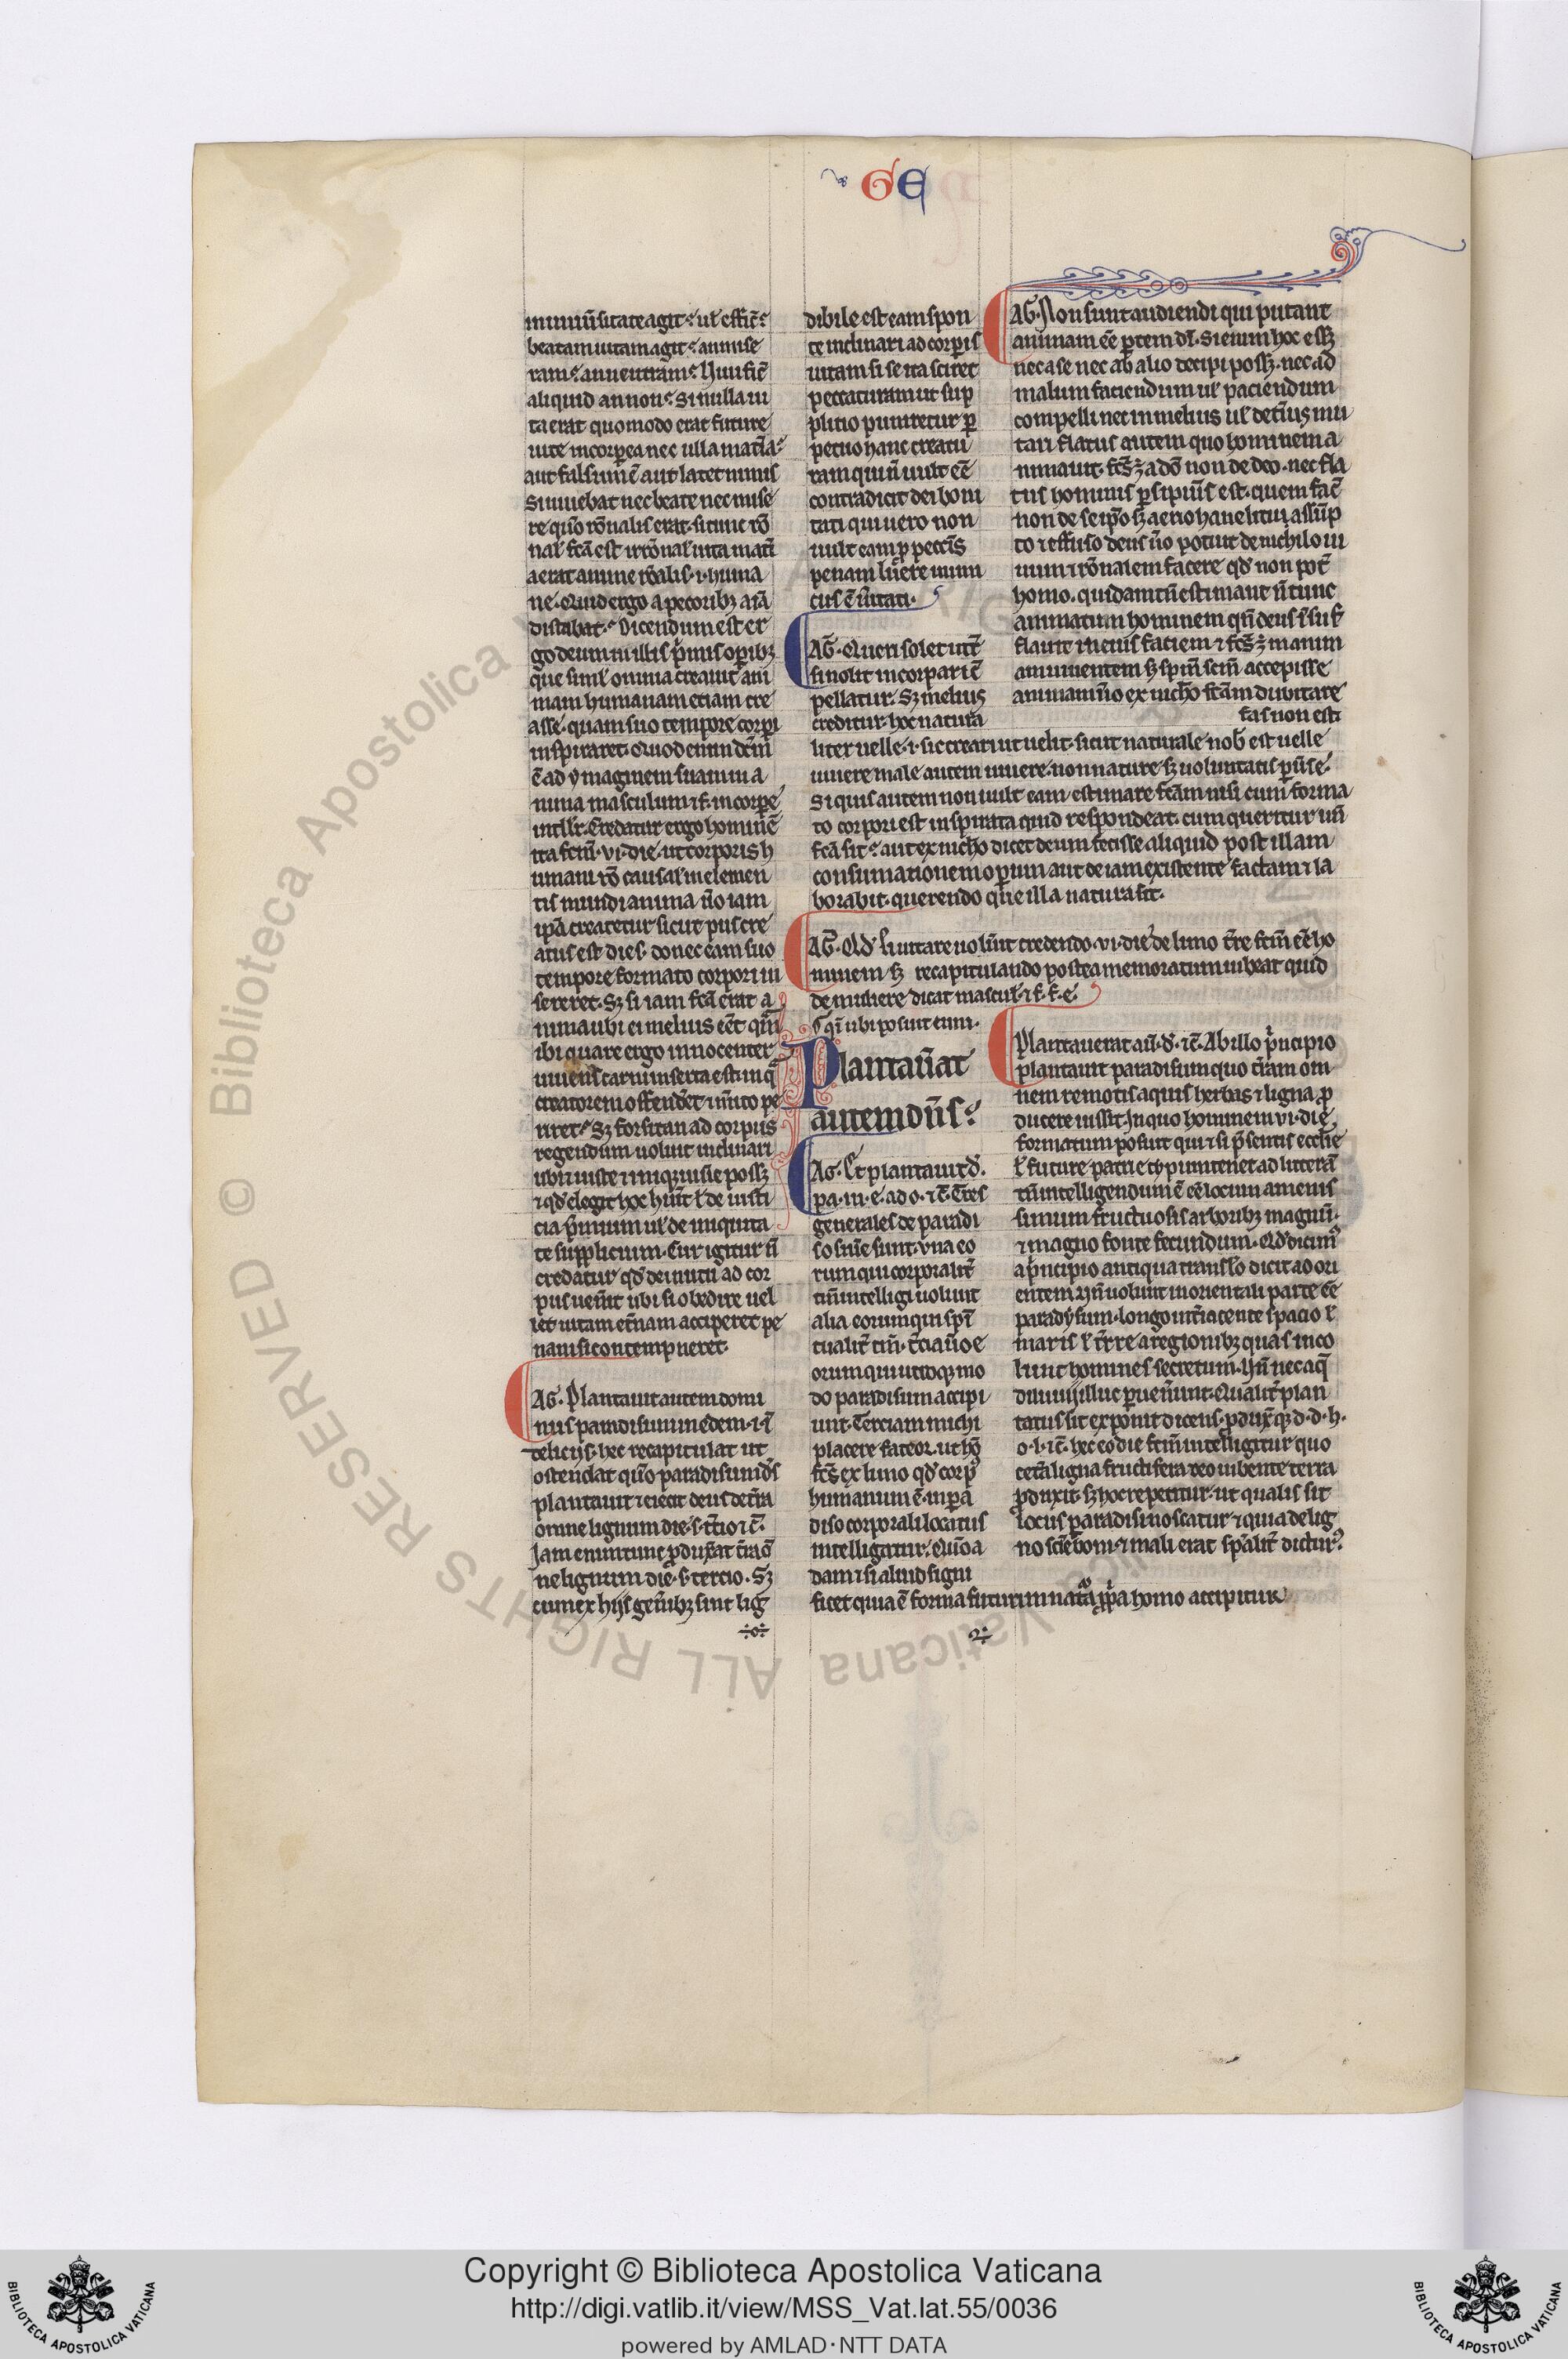 GE
minuū sitate agit· ul' effic̄·
beatam uitam agit· an mise
ram· an neutram· Huic sic̄
aliquid an non· Si nulla ui
ta erat quomodo erat future
uite incorporea nec ulla mat̄ia·
aut falsum ē aut latet nimis
Si uiuebat nec beate nec mise
re quō rōnalis erat· si tunc rō
nal' fc̄a est irrōnal' uita mat̄i
a erat anime rōalis· i· huma
ne· Quid ergo a pecoribꝫ aīa
distabat· Dicendum est er
go deum in illis p̄mis opibꝫ
que simul omnia creauit ani
mam humanam etiam cre
asse· quam suo tempore corpi
inspiraret· Quod enim dc̄m
ē ad ymaginem suam in a
nima masculum ⁊ f· in corpe
intll'r· Credatur ergo hominē
ita fc̄m· vi· die· ut corporis h
umani rō causal' in elemen
tis mundi anima ū̄o iam
ip̄a crearetur sicut prius cre
atus est dies· donec eam suo
tempore formato corpori in
sereret· Sꝫ si iam fc̄a erat a
nima ubi ei melius eēt qm̄
ibi quare ergo innocenter
uiuens carni inserta est in q̄
creatorem offendēt m̄ito pe
riret· Sꝫ forsitan ad corpus
regendum uoluit inclinari
ubi iuste ⁊ iniq̄ uiuē possꝫ
⁊ qd' elegit hoc hūit l' de iusti
cia p̄mium ul' de iniquita
te supplicium· Cur igitur n̄
credatur qd' dei nutu ad cor
pus uen̄it ubi si obedire uel
let uitam et̄nam acciperet pe
nam si contempneret·
AG· Plantauit autem domi
nus paradisum in edem· i· ī
deliciis· hec recapitulat ut
ostendat quō paradisum dn̄s
plantauit ⁊ eiecit deus de t̄ra
omne lignum die· s· t̄cio ⁊ c̄·
Iam enim tunc pduxāt t̄ra ō
ne lignum die· s· tercio· Sꝫ
cum ex hijs gen̄ibꝫ sint lig
dibile est eam spon
te inclinari ad corpis
uitam si se ita sciret
peccaturam ut sup
plitio puniretur p
petuo hanc creatu
ram qui n̄ uult eē
contradicit dei boni
tati qui uero non
uult eam p pecc̄is
penam luere inimi
cus ē ūitati·
AG· Queri solet ut̄
si nolit incorpari c̄
pellatur· Sꝫ melius
creditur· hoc natura
liter uelle· i· sic creari ut uelit· sicut naturale nob' est uelle
uiuere male autem uiuere· non nature sꝫ uoluntatis p̄use·
Si quis autem non uult eam estimare fc̄am nisi cum forma
to corpori est inspirata quid respondeat· cum queritur un̄
fc̄a sit· aut ex nich̄o dicet deum fecisse aliquid post illam
consumationem operum aut de iam existente factam ⁊ la
borabit· querendo que illa natura sit·
AG· Qd' si uitare uolūit credendo· vi· die de limo t̄re fc̄m eē ho
minem· sꝫ recapitulando postea memoratum uideat quid
de muliere dicat mascul'· ⁊ f· f· e·
qi' ubi posuit eum·
Plantauāt
autem dn̄s·
AG· Et plantauit d̄·
pa· in· e· ad o· ⁊ c̄· T̄res
generales de paradi
so sn̄ie sunt· vna eo
rum qui corporalit̄
tm̄ intelligi uolunt
alia eorum qui sp̄i
tualit̄ tm̄· t̄cia ū̄o e
orum qui utroqꝫ mo
do paradisum accipi
unt· Terciam michi
placere fateor· ut hō
fc̄s ex limo qd' corp̄
humanum ē· in pa
diso corporali locatus
intelligatur· Quō a
dam ⁊ si aliud signi
ficet quia ē forma futuri in nat̄a pp̄a homo accipitur
AG· Non sunt audiendi qui putant
animam eē ptem dī· Si enim hoc essꝫ
nec a se nec ab alio decipi possꝫ· nec ad
malum faciendum ul' paciendum
compelli nec in melius ul' det̄ius mu
tari flatus autem quo hominem a
nimauit· fc̄s ꝫ a dō non de deo· nec fla
tus hominis p̄s ipiūs est· quem fac̄
non de se ip̄o sꝫ aerio hanelitui assūp
to ⁊ effuso deus ū̄o potuit de nichilo ui
uum ⁊ rōnalem facere qd' non pot̄
homo· quidam tn̄ estimant n̄ tunc
animatum hominem qn̄ deus ī suf
flauit in eius faciem ⁊ fc̄s ꝫ in anim
am uiuentem sꝫ spm̄ scm̄ accepisse
animam ū̄o ex nich̄o fc̄am dubitare
fas non est·
Plantauerat aū· d̄· ⁊ c̄· Ab illo p̄ncipio
plantauit paradisum quo t̄ram om
nem remotis aquis herbas ⁊ ligna p
ducere iussit· In quo hominem vi· die
formatum posuit qui ⁊ si p̄sentis ecclie
l' future patrie typum tenet ad litterā
tn̄ intelligendum ē eē locum amenis
simum fructuosis arboribꝫ magnū·
⁊ magno fonte fecundum· Qd' dicim̄
a p̄ncipio antiqua transl'o dicit ad ori
entem· Vn̄ uolunt in orientali parte eē
paradysum· longo int̄iacente spacio l'
maris l' t̄rre a regionibꝫ quas inco
lunt homines secretum· Vn̄ nec aq̄
diluuij illuc peruen̄unt· Qualit̄ plan
tatus sit exponit dicens· pduxꝫ qꝫ d· d· h·
o· l· ⁊ c̄· hec eo die fc̄m intelligitur quo
cet̄a ligna fructifera deo iubente terra
pduxit· sꝫ hoc repetitur· ut qualis sit
locus paradisi noscatur· ⁊ quia de lig
no scie boni ⁊ mali erat spālit̄ dictur̄·
Copyright © Biblioteca Apostolica Vaticana
http://digi.vatlib.it/view/MSS_Vat.lat.55/0036
powered by AMLAD·NTT DATA
BIBLIOTECA APOSTOLICA VATICANA
BIBLIOTECA APOSTOLICA VATICANA
© Biblioteca Apostolica Vaticana ALL RIGHTS RESERVED